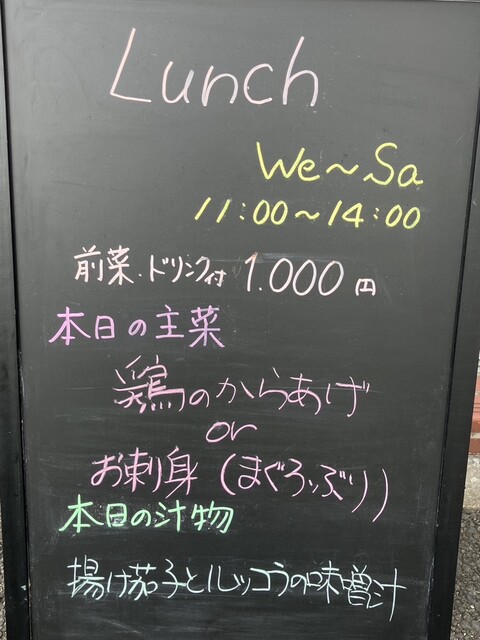 Lunch
We~Sa
11:00~14:00
前菜.ドリンク付 1.000円
本日の主菜
鶏のからあげ
or
お刺身(まぐろ、ぶり)
本日の汁物
揚げ茄子とルッコラの味噌汁